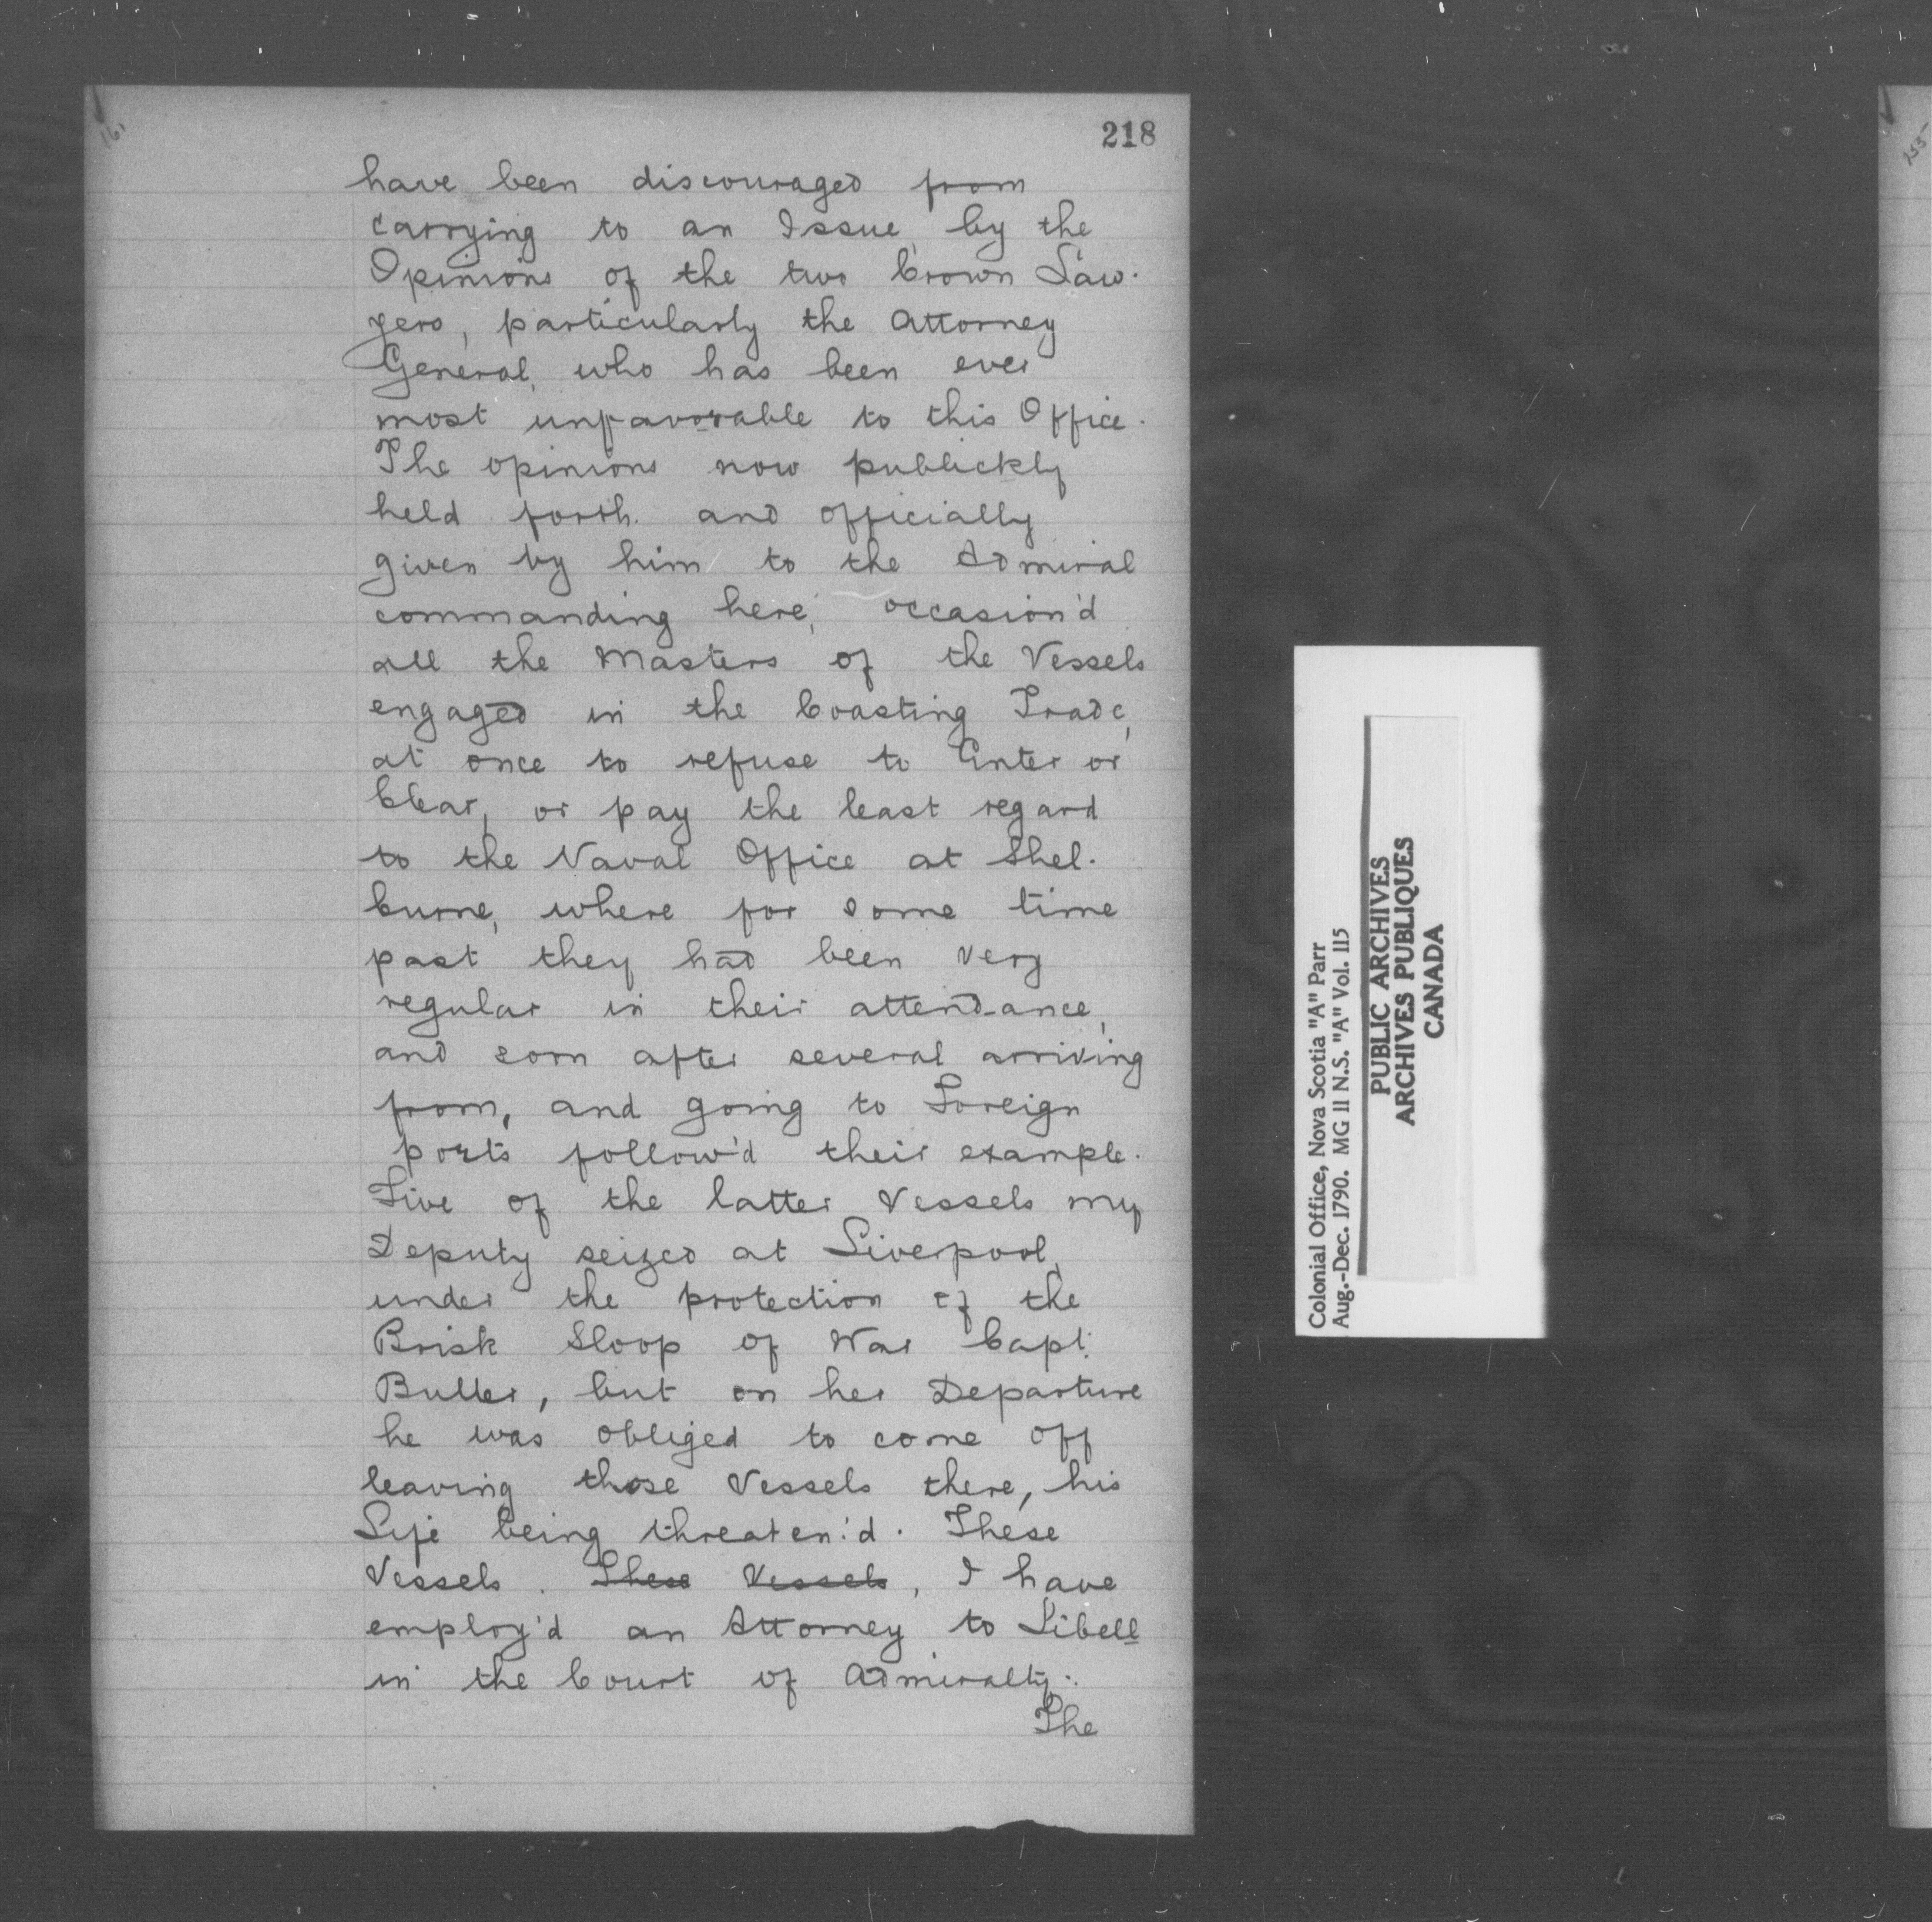 161
218
have been discouraged from
carrying to an Issue, by the
Opinions of the two Crown Law-
yers, particularly the Attorney
General, who has been ever
most unfavorable to this Office.
The opinions now publickly
held forth. and officially
given by him to the Admiral
commanding here, occasion'd
all the Masters of the Vessels
engaged in the Coasting Trade,
at once to refuse to Enter or
Clear, or pay the least regard
to the Naval Office at Shel-
burne, where for some time
past they had been very
regular in their attendance,
and soon after several arriving
from, and going to Foreign
ports follow'd their example.
Five of the latter Vessels my
Deputy seized at Liverpool,
under the protection of the
Brisk Sloop of War Capt.
Buller, but on her Departure
he was obliged to come off
leaving those Vessels there, his
Life being threaten'd. These
Vessels. These Vessels, I have
employ'd an Attorney to Libell
in the Court of Admiralty.
The
Colonial Office, Nova Scotia "A" Parr
Aug.-Dec. 1790. MG 11 N.S. "A" Vol. 115
PUBLIC ARCHIVES
ARCHIVES PUBLIQUES
CANADA